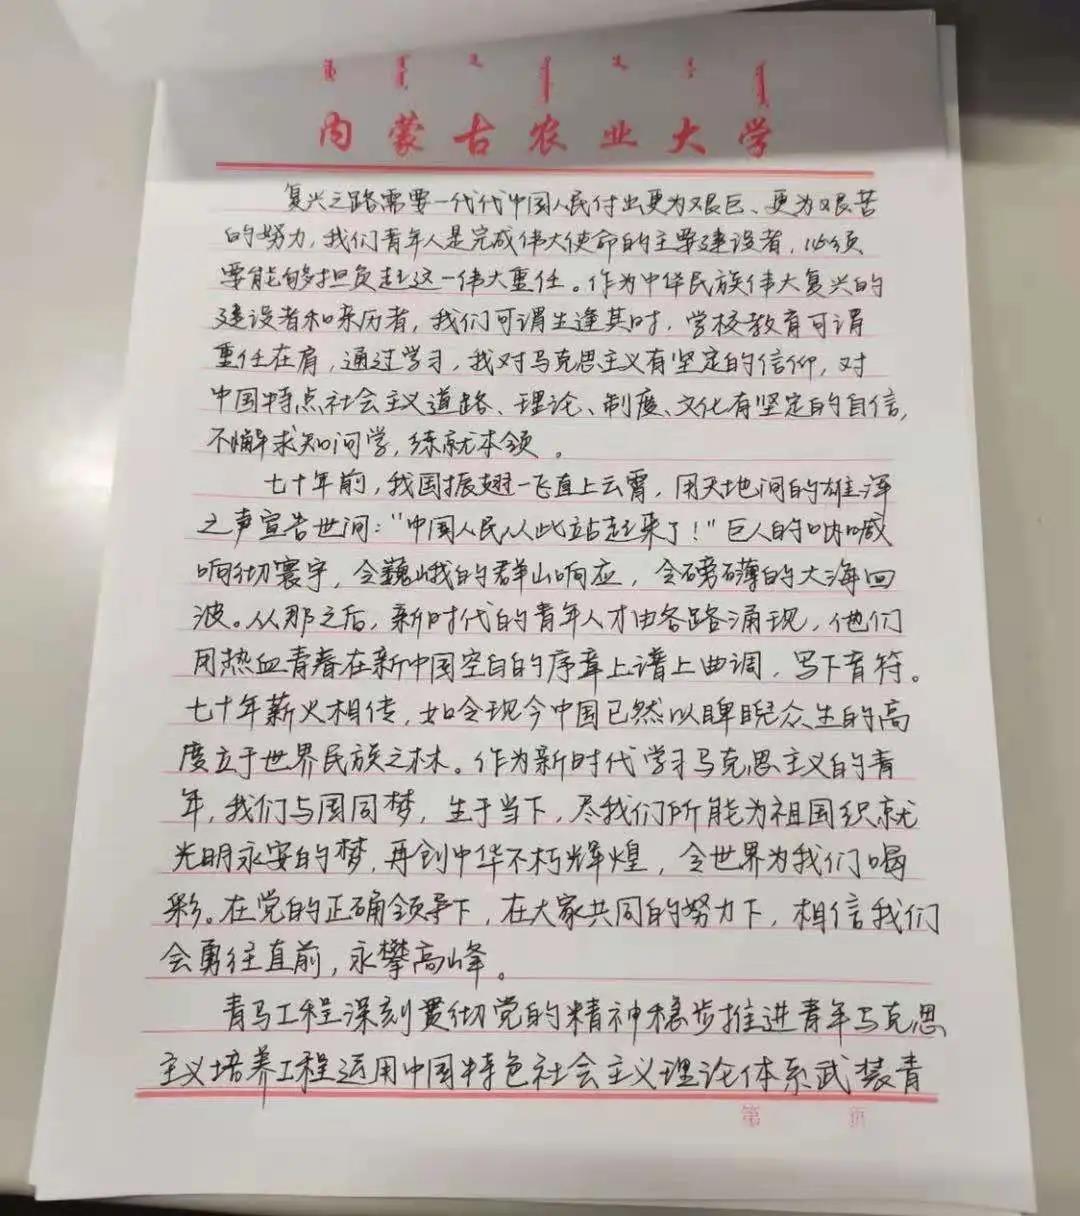 内蒙古农业大学
复兴之路需要一代代中国人民付出更为艰巨、更为艰苦
的努力,我们青年人是完成伟大使命的主要建设者,必须
要能够担负起这一伟大重任。作为中华民族伟大复兴的
建设者和亲历者,我们可谓生逢其时,学校教育可谓
重任在肩,通过学习,我对马克思主义有坚定的信仰,对
中国特点社会主义道路、理论、制度、文化有坚定的自信,
不懈求知问学,练就本领。
七十年前,我国振翅一飞直上云霄,用天地间的雄浑
之声宣告世间:“中国人民从此站起来了!”巨人的呐喊
响彻寰宇,令巍峨的群山响应,令磅礴的大海回
波。从那之后,新时代的青年人才由各路涌现,他们
用热血青春在新中国空白的序章上谱上曲调,写下音符。
七十年薪火相传,如今现今中国已然以睥睨众生的高
度立于世界民族之林。作为新时代学习马克思主义的青
年,我们与国同梦,生于当下,尽我们所能为祖国织就
光明永安的梦,再创中华不朽辉煌,令世界为我们喝
彩。在党的正确领导下,在大家共同的努力下,相信我们
会勇往直前,永攀高峰。
青马工程深刻贯彻党的精神稳步推进青年马克思
主义培养工程运用中国特色社会主义理论体系武装青
第 页